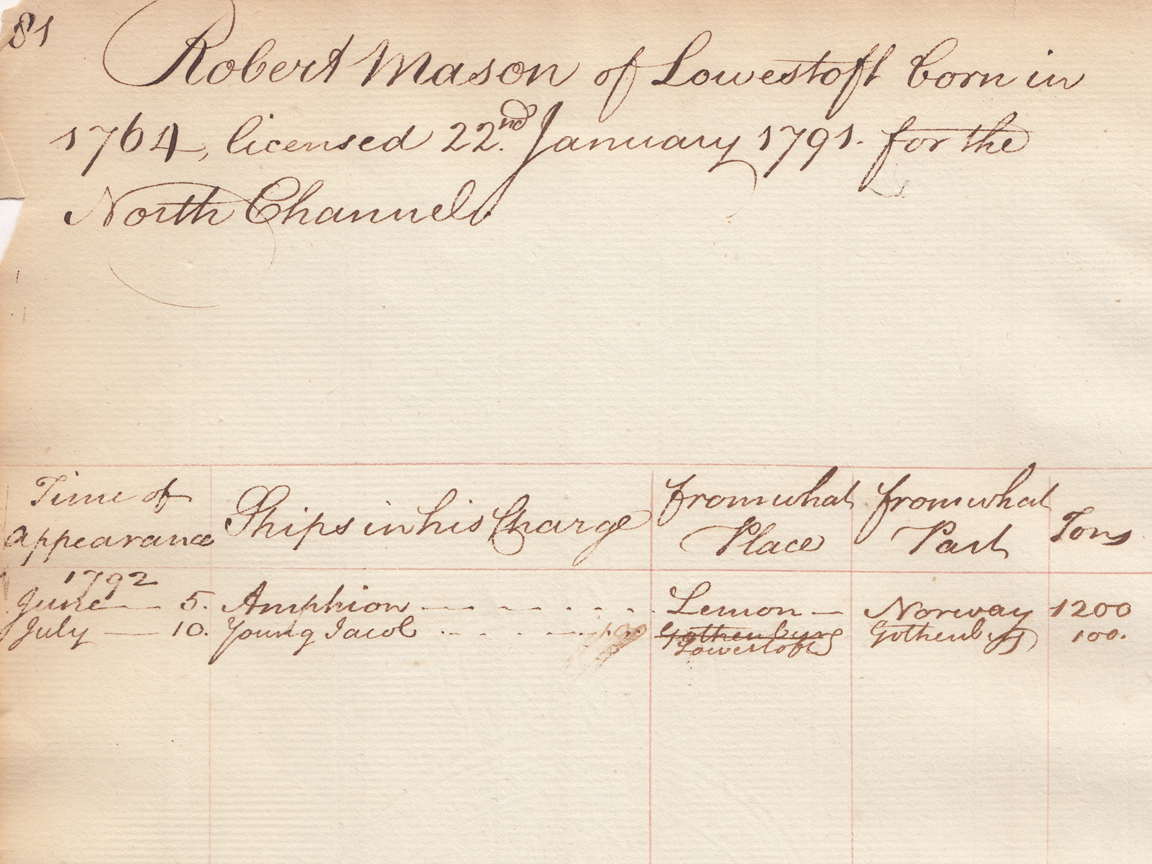 81
Robert Mason of Lowestoft born in
1764, licensed 22.nd January 1791. for the
North Channel.
Time of Appearance Ships in his Charge from what Place from what Part Tons
1792
June — 5. Amphion - - - - - - Lemon — Norway 1200
July — 10. Young Jacob - - - - - 100 Gothenburg Gothenburg 100.
Lowestoft